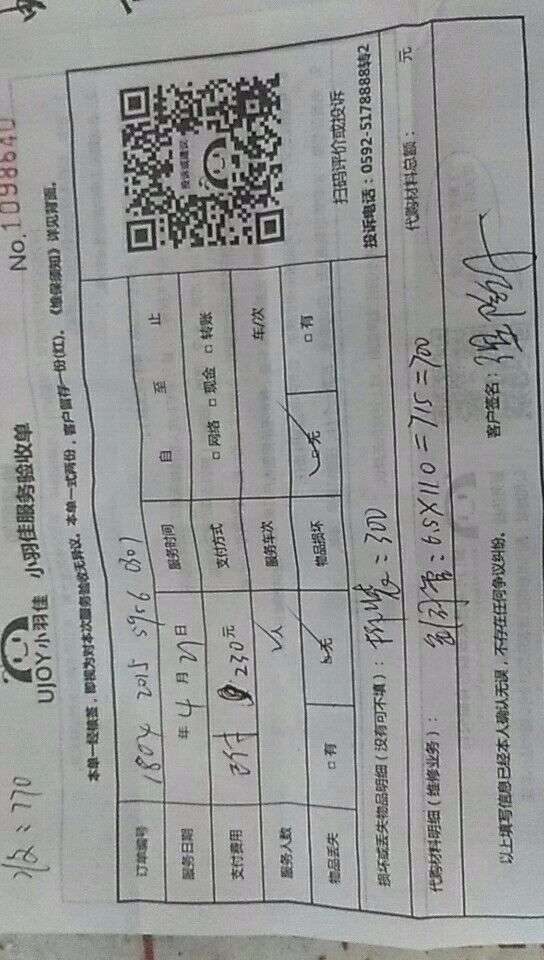 收: 770
UJOY小羽佳 小羽佳服务验收单 No.1098640
本单一经核签，即视为对本次服务验收无异议。本单一式两份，客户留存一份(红)。《维保须知》详见背面。
订单编号 1804 2015 5956 0301
服务日期 年 4 月 29 日 服务时间 自 至 止
支付费用 已付 230元 支付方式 □网络 □现金 □转账
服务人数 人 服务车次 车/次
物品丢失 □有 □无 物品损坏 □无 □有
投诉或建议
扫码评价或投诉
投诉电话：0592-5178888转2
损坏或丢失物品明细（没有可不填）：拆装：300
代购材料明细（维修业务）：铜管：6.5×110=715=700 代购材料总额： 元
以上填写信息已经本人确认无误，不存在任何争议纠纷。 客户签名：